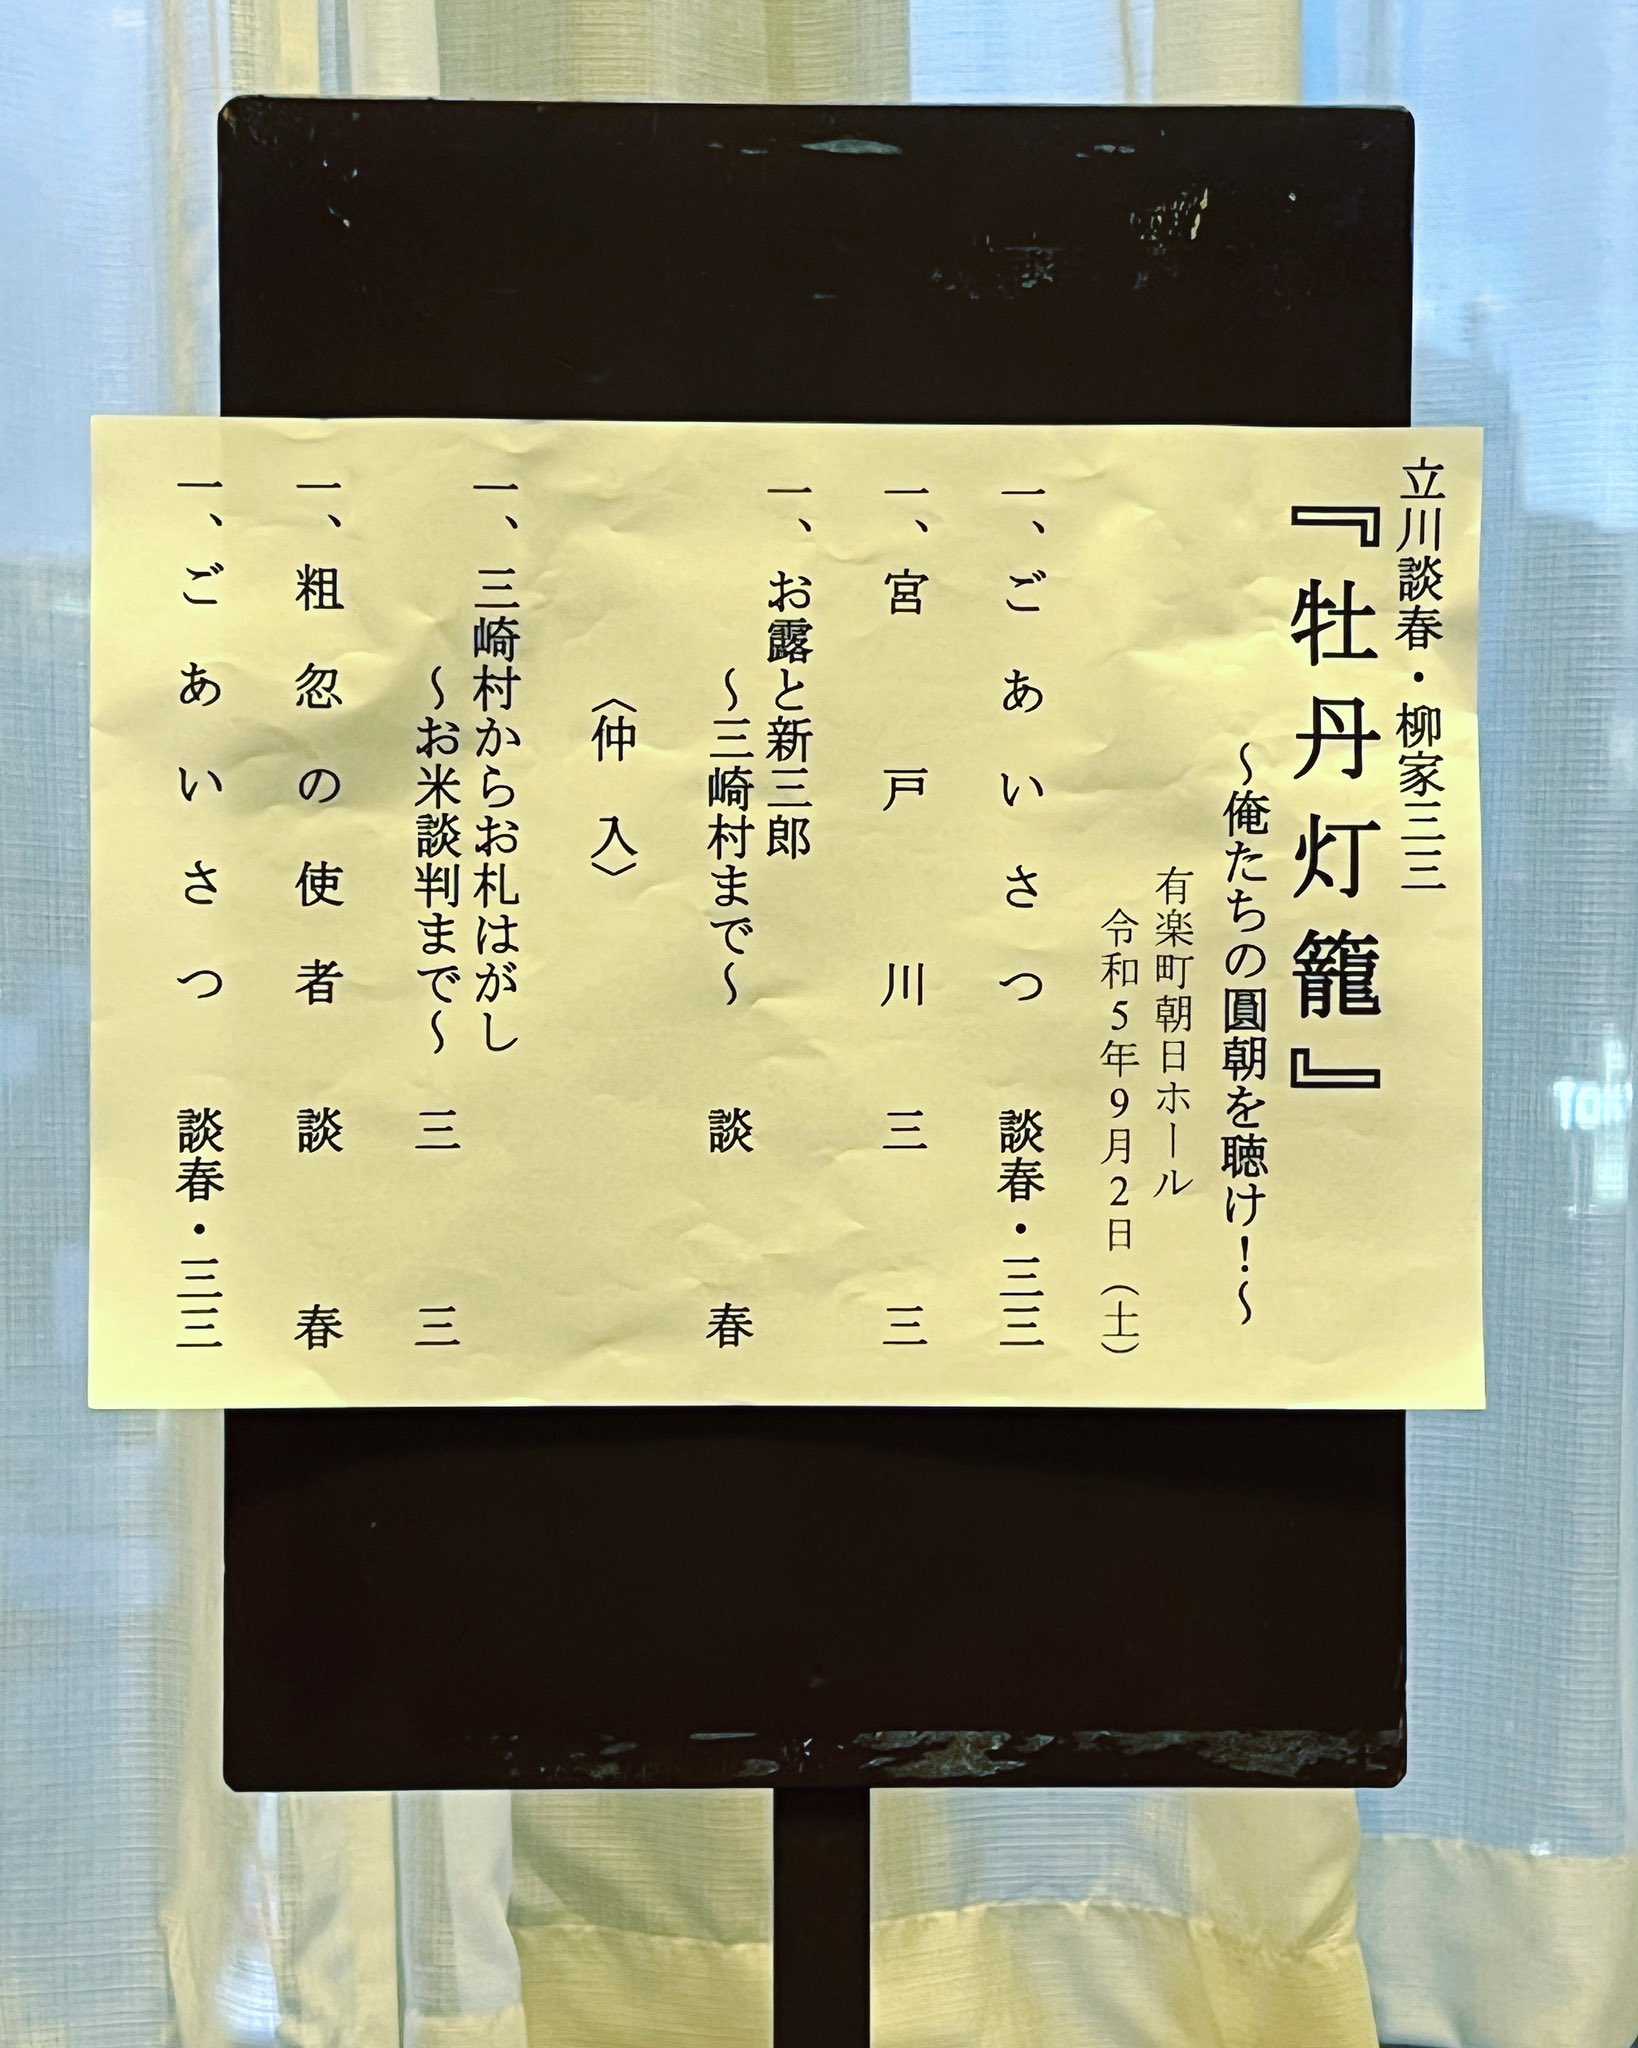 立川談春・柳家三三
『牡丹灯籠』
～俺たちの圓朝を聴け！～
有楽町朝日ホール
令和5年9月2日（土）
一、ごあいさつ 談春・三三
一、宮戸川 三三
一、お露と新三郎
～三崎村まで～ 談春
〈仲入〉
一、三崎村からお札はがし
～お米談判まで～ 三三
一、粗忽の使者 談春
一、ごあいさつ 談春・三三